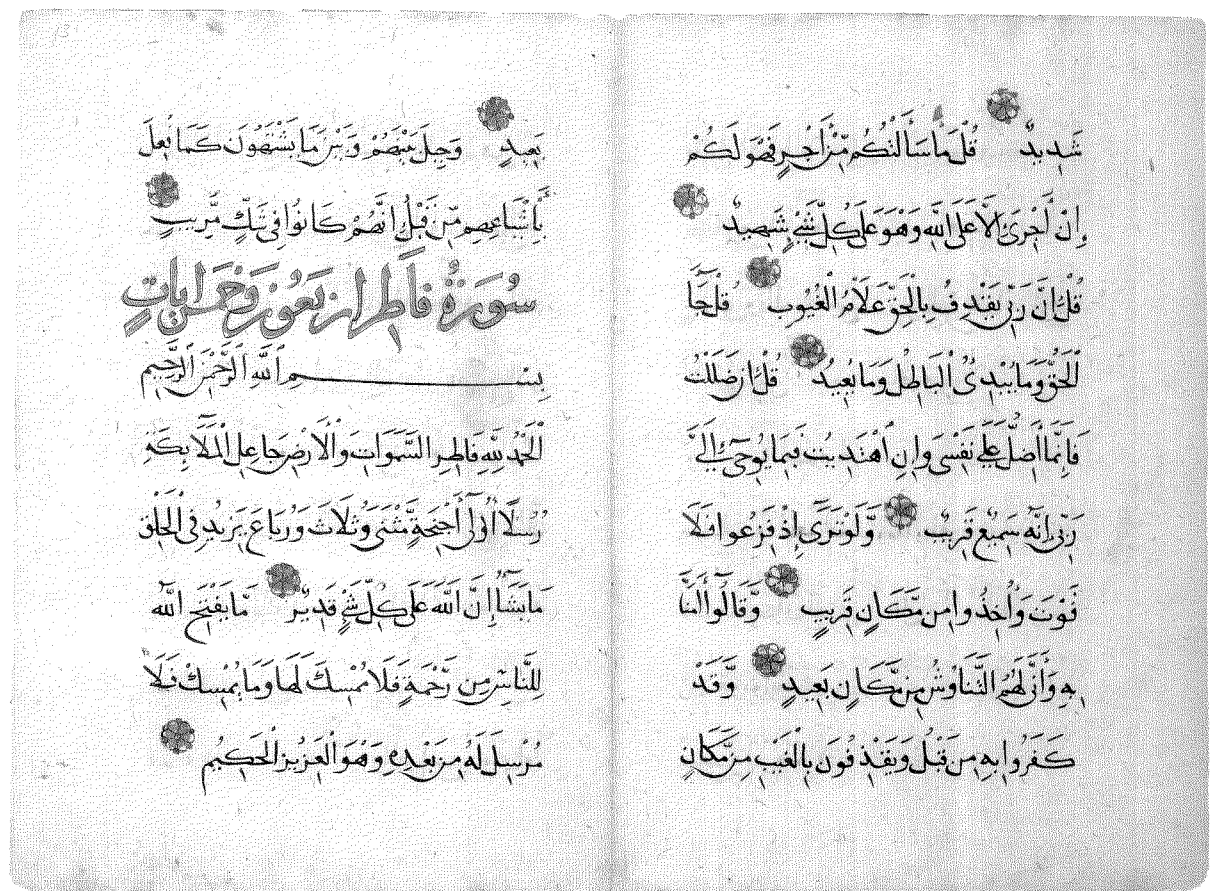 شَدِيدٌ قُلْ مَا سَأَلْتُكُم مِّنْ أَجْرٍ فَهُوَ لَكُمْ
إِنْ أَجْرِيَ إِلَّا عَلَى اللَّهِ وَهُوَ عَلَى كُلِّ شَيْءٍ شَهِيدٌ
قُلْ إِنَّ رَبِّي يَقْذِفُ بِالْحَقِّ عَلَّامُ الْغُيُوبِ قُلْ جَآ
الْحَقُّ وَمَا يُبْدِئُ الْبَاطِلُ وَمَا يُعِيدُ قُلْ إِن ضَلَلْتُ
فَإِنَّمَا أَضِلُّ عَلَى نَفْسِي وَإِنِ اهْتَدَيْتُ فَبِمَا يُوحِي إِلَيَّ
رَبِّي إِنَّهُ سَمِيعٌ قَرِيبٌ وَلَوْ تَرَى إِذْ فَزِعُوا فَلَا
فَوْتَ وَأُخِذُوا مِن مَّكَانٍ قَرِيبٍ وَقَالُوا آمَنَّا
بِهِ وَأَنَّى لَهُمُ التَّنَاوُشُ مِن مَّكَانٍ بَعِيدٍ وَقَدْ
كَفَرُوا بِهِ مِن قَبْلُ وَيَقْذِفُونَ بِالْغَيْبِ مِن مَّكَانٍ
بَعِيدٍ وَحِيلَ بَيْنَهُمْ وَبَيْنَ مَا يَشْتَهُونَ كَمَا فُعِلَ
بِأَشْيَاعِهِم مِّن قَبْلُ إِنَّهُمْ كَانُوا فِي شَكٍّ مُّرِيبٍ
سُورَةُ فَاطِر أَرْبَعُونَ وَخَمْسُ آيَاتٍ
بِسْمِ اللَّهِ الرَّحْمَنِ الرَّحِيمِ
الْحَمْدُ لِلَّهِ فَاطِرِ السَّمَوَاتِ وَالْأَرْضِ جَاعِلِ الْمَلَائِكَةِ
رُسُلًا أُولِي أَجْنِحَةٍ مَّثْنَى وَثُلَاثَ وَرُبَاعَ يَزِيدُ فِي الْخَلْقِ
مَا يَشَاءُ إِنَّ اللَّهَ عَلَى كُلِّ شَيْءٍ قَدِيرٌ مَّا يَفْتَحِ اللَّهُ
لِلنَّاسِ مِن رَّحْمَةٍ فَلَا مُمْسِكَ لَهَا وَمَا يُمْسِكْ فَلَا
مُرْسِلَ لَهُ مِن بَعْدِهِ وَهُوَ الْعَزِيزُ الْحَكِيمُ